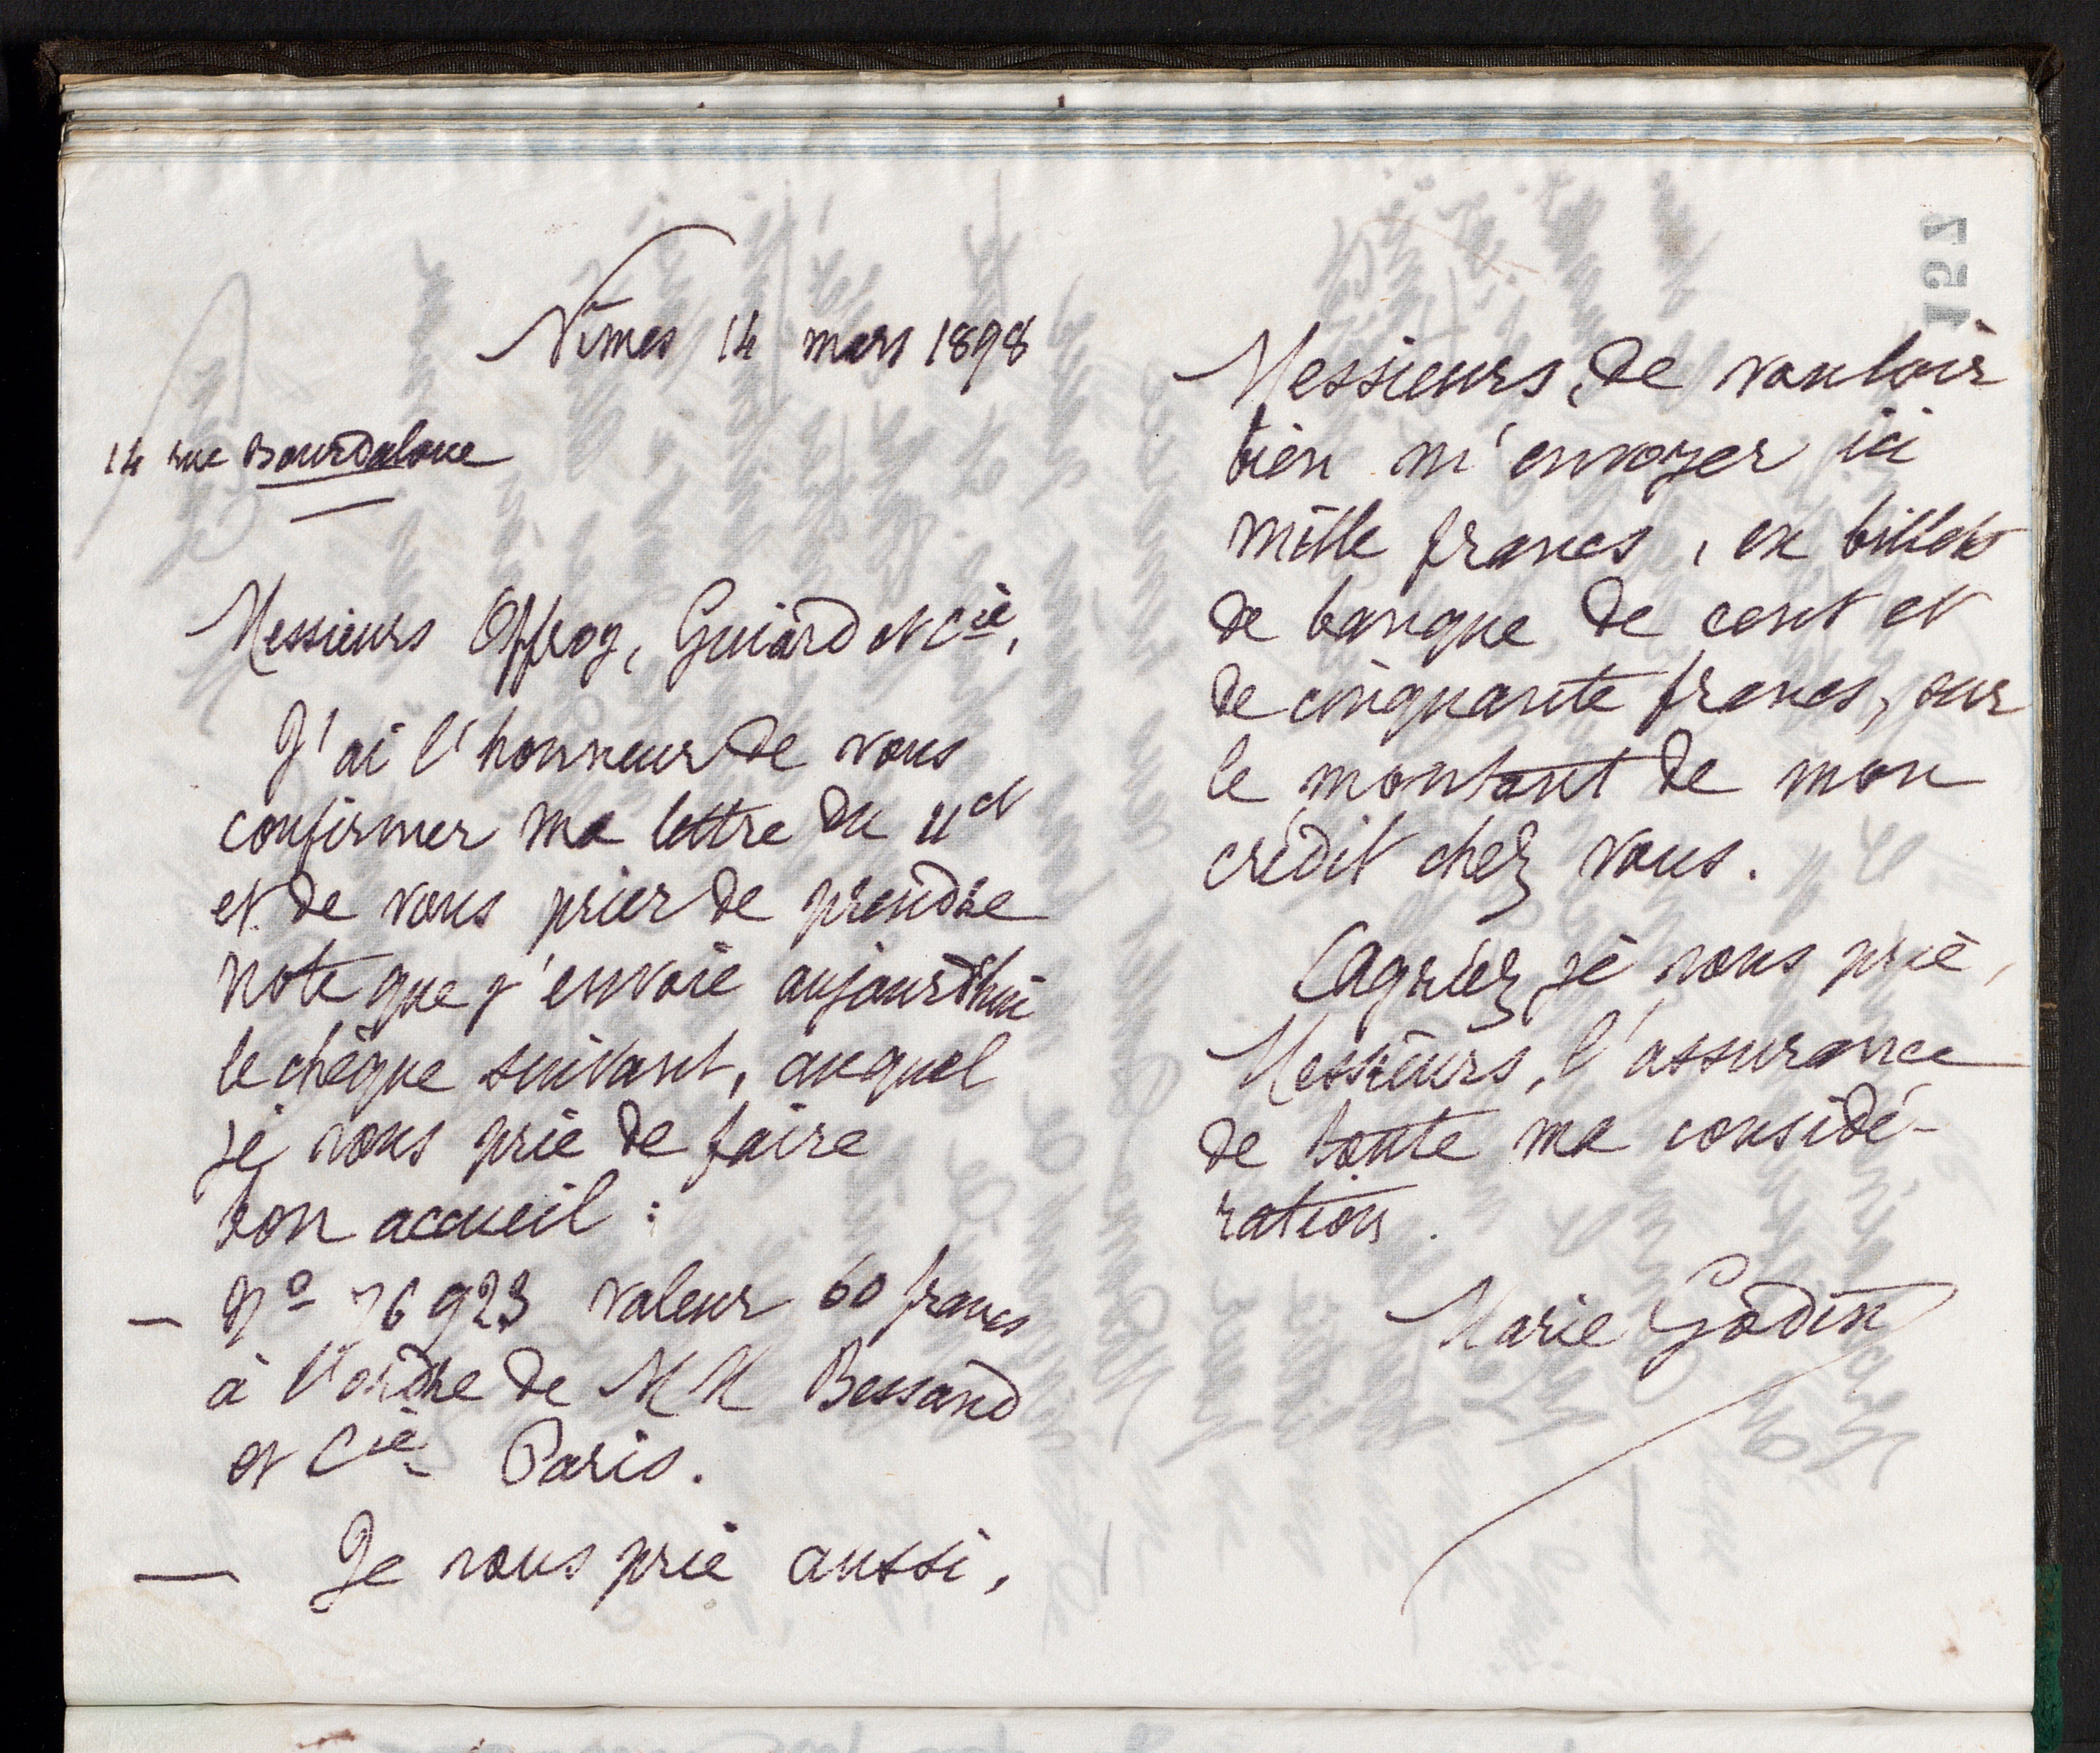 Nîmes 14 mars 1898
14 rue Bourdaloue
Messieurs Offroy, Guiard et Cie,
J'ai l'honneur de vous
confirmer ma lettre du 11 ct
et de vous prier de prendre
note que j'envoie aujourd'hui
le chèque suivant, auquel
je vous prie de faire
bon accueil :
— No 76 923 valeur 60 francs
à l'ordre de MM Bessand
et Cie Paris.
— Je vous prie aussi,
157
Messieurs, de vouloir
bien m'envoyer ici
mille francs, en billets
de banque de cent et
de cinquante francs, sur
le montant de mon
crédit chez vous.
Agréez, je vous prie,
Messieurs, l'assurance
de toute ma considé-
ration.
Marie Godin